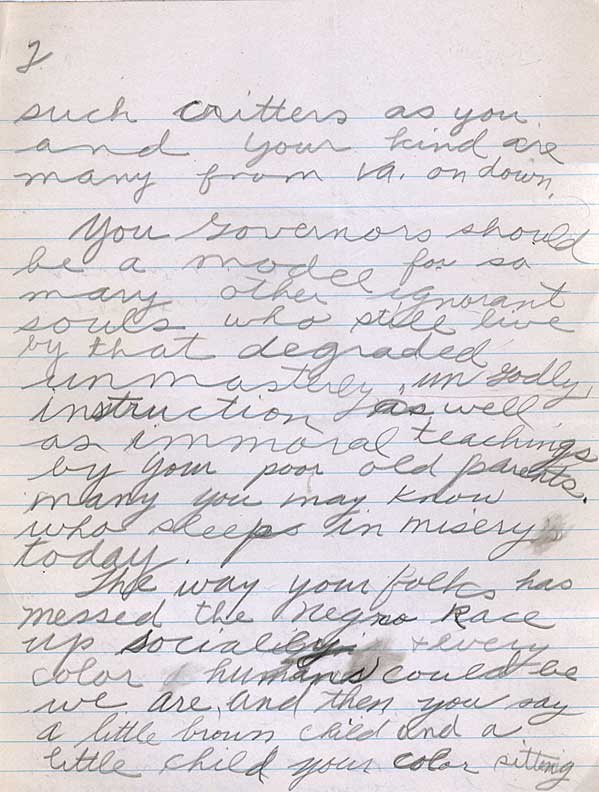 2
such critters as you
and your kind are
many from va. on down.
You Governors should
be a model for so
many other ignorant
souls who still live
by that degraded
unmasterly, un Godly,
instruction as well
as immoral teachings
by your poor old parents.
many you may know
who sleeps in misery
today.
The way your folks has
messed the Negro Race
up socially & every
color humans could be
we are, and then you say
a little brown child and a
little child your color sitting